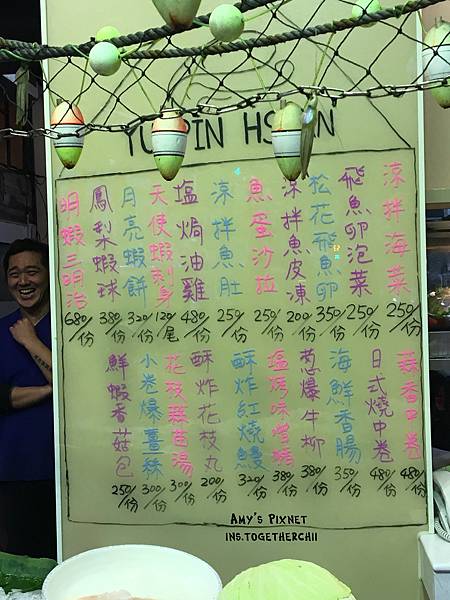 YU PIN HSUAN
涼拌海菜 250/份
飛魚卵泡菜 250/份
松花飛魚卵 350/份
涼拌魚皮凍 200/份
魚蛋沙拉 250/份
涼拌魚肚 250/份
塩焗油雞 480/份
天使蝦刺身 120/尾
月亮蝦餅 320/份
鳳梨蝦球 380/份
明蝦三明治 680/份
蒜香中卷 480/份
日式燒中卷 480/份
海鮮香腸 350/份
蔥爆牛柳 380/份
塩烤味噌 380/份
酥炸紅燒鰻 320/份
酥炸花枝丸 200/份
花枝蒜苗湯 300/份
小卷爆薑絲 300/份
鮮蝦香菇包 250/份
AMY'S PIXNET
INS.TOGETHERCHII